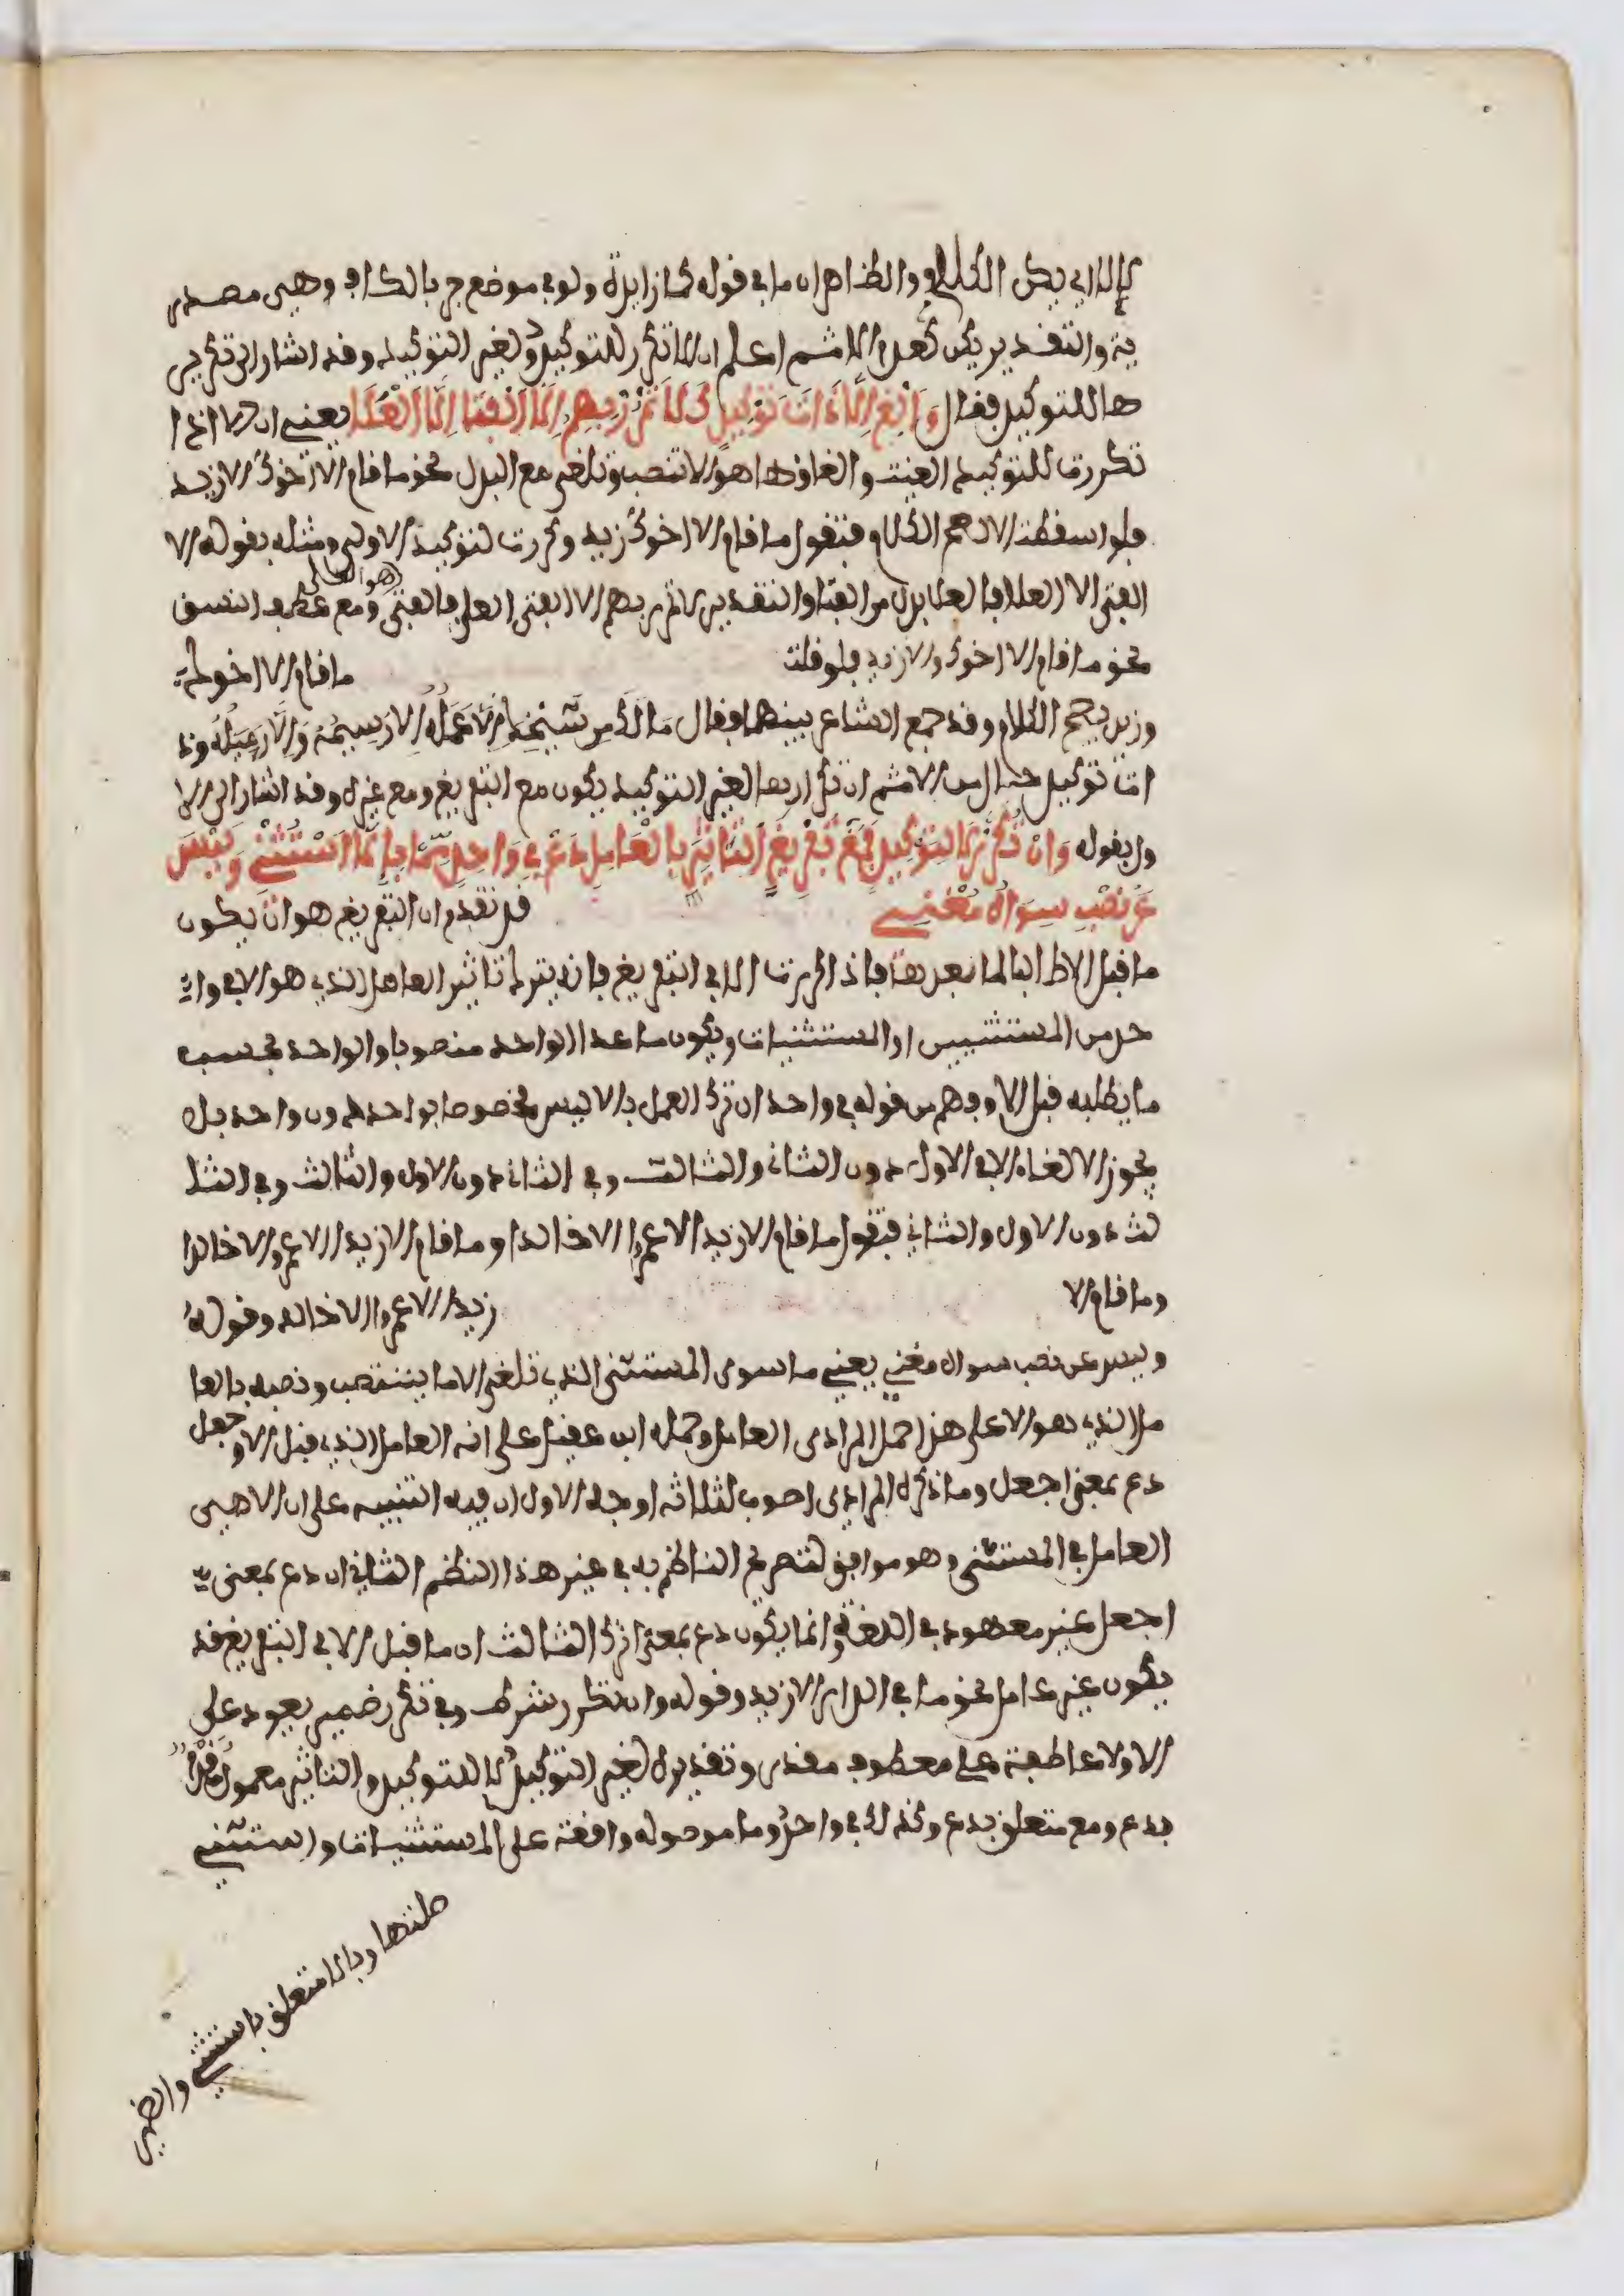 كالا اي يكن الكلام والظاهر ان ما في قوله كما زايدة ولو في موضع جر بالكاف وهي مصدر
ية والتقدير يكن كعدم الا ثم اعلم ان الا تكرر للتوكيد ولغير التوكيد وقد اشار الى تكرير
ها للتوكيد فقال وَأَلْغِ إِلاَّ ذَاتَ تَوْكِيدٍ كَلاَ تَمْرُرْ بِهِمْ إِلاَّ الْفَتَى إِلاَّ الْعَلاَ يعني ان الا اذا
تكررت للتوكيد الغيت والغاؤها هو الا تنصب وتلغى مع البدل نحو ما قام الا اخوك الا زيد
فلو اسقطت الا لصح الكلام فتقول ما قام الا اخوك زيد وكررت لتوكيد الاولى ومثله بقوله الا
الفتى الا العلا فالعلا بدل من الفتا والتقدير لا تمرر بهم الا الفتى العلا فالفتى هو العلى ومع عطف النسق
نحو ما قام الا اخوك والا زيد فلو قلت ما قام الا اخوك
وزيد لصح الكلام وقد جمع الشاعر بينهما فقال مَا لَكَ مِن شَيْخِكَ إِلاَّ عَمَلُهُ إِلاَّ رَسِيمُهُ وَإِلاَّ رَمَلُهُ وذ
ات توكيد حال من الا ثم ان تكرارها لغير التوكيد يكون مع التفريغ ومع غيره وقد اشار الى الا
ول بقوله وَإِنْ تُكَرَّرْ لاَ لِتَوْكِيدٍ فَمَعْ تَفْرِيغٍ التَّأْثِيرَ بِالْعَامِلِ دَعْ فِي وَاحِدٍ مِمَّا بِإِلاَّ اسْتُثْنِي وَلَيْسَ
عَنْ نَصْبِ سِوَاهُ مُغْنِي قد تقدم ان التفريغ هو ان يكون
ما قبل الا طالبا لما بعدها فاذا كررت الا في التفريغ فانه يترك تاثير العامل الذي هو الا في وا
حد من المستثنيين او المستثنيات ويكون ما عدا الواحد منصوبا والواحد بحسب
ما يطلبه قبل الا وفهم من قوله في واحد ان ترك العمل بالا ليس مخصوصا بواحد دون واحد بل
يجوز الالغاء الا في الاول دون الثاني والثالث وفي الثاني دون الاول والثالث وفي الثا
لث دون الاول والثاني فتقول ما قام الا زيد الا عمرا الا خالدا وما قام الا زيدا الا عمرو الا خالدا
وما قام الا زيدا الا عمرا الا خالد وقوله
وليس عن نصب سواه مغني يعني ما سوى المستثنى الذي تلغى الا ما ينتصب ونصبه بالعا
مل الذي هو الا على هذا حمل المرادى العامل وحمله ابن عقيل على انه العامل الذي قبل الا وجعل
دع بمعنى اجعل وما ذكره المرادى اصوب لثلاثه اوجه الاول ان فيه التنبيه على ان الا هي
العامل في المستثنى وهو موافق لتصريح الناظم به في غير هذا النظم الثاني ان دع بمعنى
اجعل غير معهود في اللغة وانما يكون دع بمعنى اترك الثالث ان ما قبل الا في التفريغ قد
يكون غير عامل نحو ما في الدار الا زيد وقوله وان تكرر شرط وفي تكرر ضمير يعود على
الا ولا عاطفة على معطوف مقدر وتقديره لغير التوكيد لا للتوكيد والتاثير معمول مقدم
بدع ومع متعلق بدع وكذلك في واحد وما موصوله واقعة على المستثنيات واستثني
صلتها وبالا متعلق باستثني والضمير